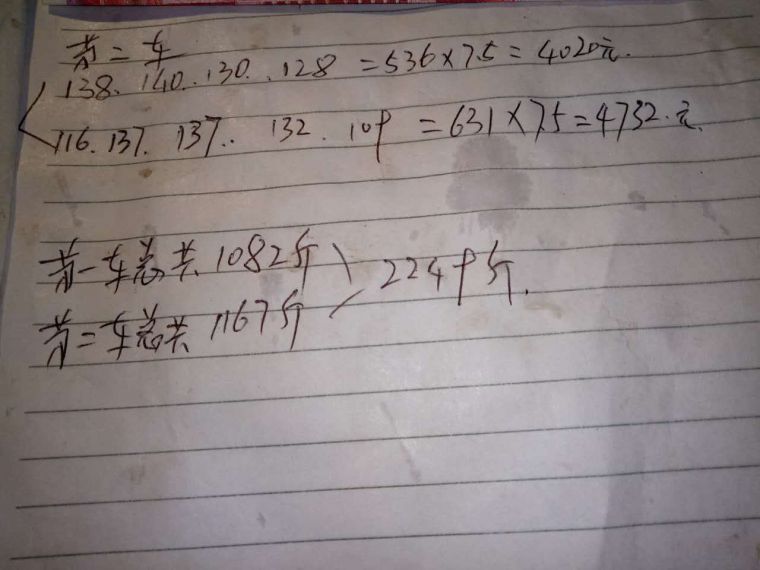 第二车
138. 140. 130. 128 =536×7.5=4020元.
116. 137. 137.. 132. 109 =631×7.5=4732.元.
第一车总共1082斤
2249斤.
第二车总共1167斤